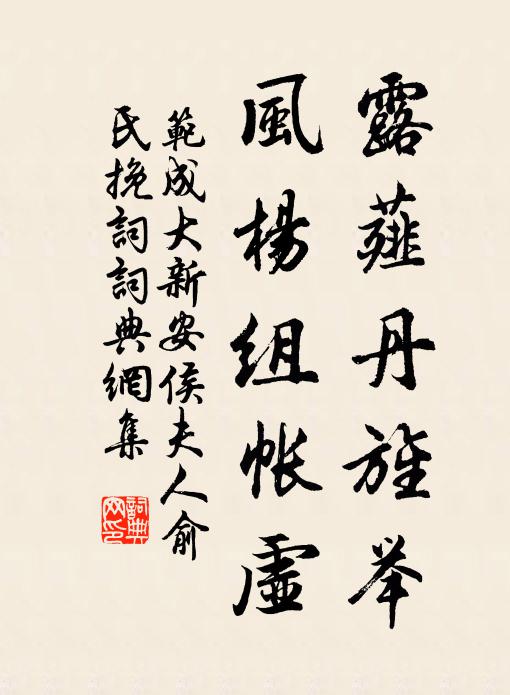 露薤丹旌举
風楊組帳虛
範成大新安侯夫人俞
氏挽詞詞典網集